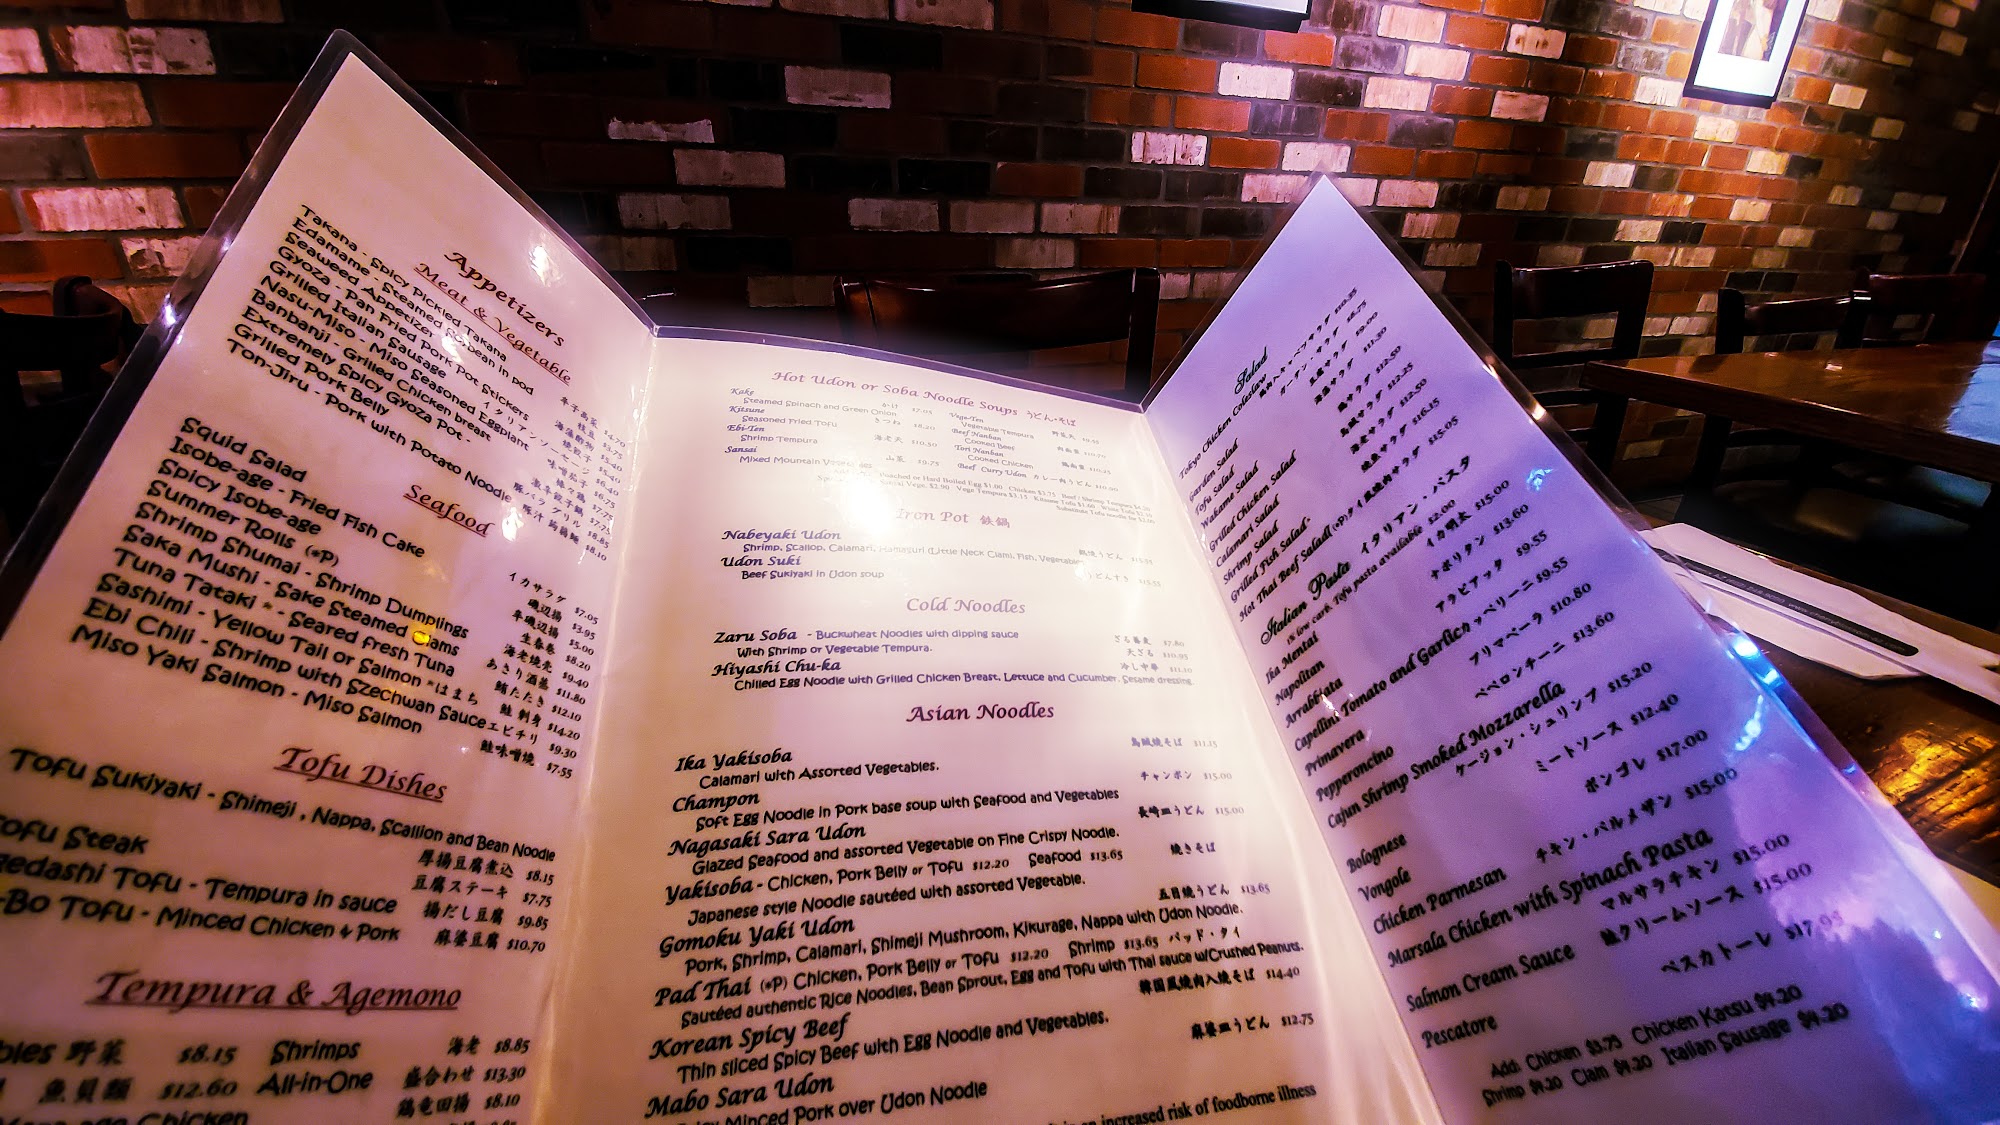 Appetizers
Meat & Vegetable
Takana - Spicy Pickled Takana 辛子高菜 $4.70
Edamame - Steamed Soybean in pod 枝豆 $3.75
Seaweed Appetizer 海藻酢物 $5.40
Gyoza - Pan Fried Pork Pot Stickers 焼餃子 $6.40
Grilled Italian Sausage イタリアンソーセージ
Nasu-Miso - Miso Seasoned Eggplant 味噌茄子 $6.75
Banbanji - Grilled Chicken breast $7.75
Extremely Spicy Gyoza Pot - 激辛餃子鍋 $7.75
Grilled Pork Belly 豚バラグリル $8.85
Ton-Jiru - Pork with Potato Noodle 豚汁 $8.10
Seafood
Squid Salad イカサラダ $7.05
Isobe-age - Fried Fish Cake 磯辺揚 $3.95
Spicy Isobe-age 辛磯辺揚 $5.00
Summer Rolls (*P) 生春巻 $8.20
Shrimp Shumai - Shrimp Dumplings 海老焼売 $9.40
Saka Mushi - Sake Steamed Clams あさり酒蒸 $11.80
Tuna Tataki * - Seared fresh Tuna 鮪たたき $12.10
Sashimi - Yellow Tail or Salmon * はまち 鮭 刺身 $14.20
Ebi Chili - Shrimp with Szechwan Sauce エビチリ $9.30
Miso Yaki Salmon - Miso Salmon 鮭味噌焼 $7.55
Tofu Dishes
Tofu Sukiyaki - Shimeji , Nappa, Scallion and Bean Noodle
厚揚豆腐煮込 $8.15
Tofu Steak 豆腐ステーキ $7.75
gedashi Tofu - Tempura in sauce 揚だし豆腐 $9.85
-Bo Tofu - Minced Chicken & Pork 麻婆豆腐 $10.70
Tempura & Agemono
bles 野菜 $8.15 Shrimps 海老 $8.85
魚貝類 $12.60 All-in-One 盛合わせ $13.30
鶏竜田揚 $8.10
Chicken
Hot Udon or Soba Noodle Soups うどん・そば
Kake かけ $7.95
Steamed Spinach and Green Onion
Kitsune きつね $8.20
Seasoned Fried Tofu
Ebi-Ten 海老天 $10.50
Shrimp Tempura
Sansai 山菜 $9.75
Mixed Mountain Vegetables
Vege-Ten
Vegetable Tempura 野菜天
Beef Nanban
Cooked Beef 肉南蛮
Tori Nanban
Cooked Chicken 鶏南蛮 $10.25
Beef Curry Udon カレー肉うどん $10.00
Poached or Hard Boiled Egg $1.00 Chicken $3.75
Vege. $2.90 Vege Tempura $3.15 Kitsune Tofu $1.60
Substitute Tofu noodle for $2.00
Iron Pot 鉄鍋
Nabeyaki Udon
Shrimp, Scallop, Calamari, Hamaguri (Little Neck Clam), Fish, Vegetables 鍋焼うどん
Udon Suki
Beef Sukiyaki in Udon soup うどんすき
Cold Noodles
Zaru Soba - Buckwheat Noodles with dipping sauce ざる蕎麦 $7.80
With Shrimp or Vegetable Tempura. 天ざる $10.95
Hiyashi Chu-ka 冷し中華 $11.10
Chilled Egg Noodle with Grilled Chicken Breast, Lettuce and Cucumber, Sesame dressing
Asian Noodles
Ika Yakisoba 烏賊焼そば $11.15
Calamari with Assorted Vegetables.
Champon チャンポン $15.00
Soft Egg Noodle in Pork base soup with Seafood and Vegetables
Nagasaki Sara Udon 長崎皿うどん $15.00
Glazed Seafood and assorted Vegetable on Fine Crispy Noodle.
Yakisoba - Chicken, Pork Belly or Tofu $12.20 Seafood $13.65 焼きそば
Japanese style Noodle sautéed with assorted Vegetable.
Gomoku Yaki Udon 五目焼うどん $13.65
Pork, Shrimp, Calamari, Shimeji Mushroom, Kikurage, Nappa with Udon Noodle.
Pad Thai (*P) Chicken, Pork Belly or Tofu $12.20 Shrimp $13.65 パッド・タイ
Sautéed authentic Rice Noodles, Bean Sprout, Egg and Tofu with Thai sauce w/Crushed Peanuts.
Korean Spicy Beef 韓国風焼肉入焼そば $14.40
Thin sliced Spicy Beef with Egg Noodle and Vegetables.
Mabo Sara Udon 麻婆皿うどん $12.75
Minced Pork over Udon Noodle
an increased risk of foodborne illness
Salad
Tokyo Chicken Coleslaw
Garden Salad ガーデン・サラダ $6.75
Tofu Salad 豆腐サラダ $9.00
Wakame Salad 海藻サラダ $11.30
Grilled Chicken Salad 鶏サラダ $12.50
Calamari Salad 烏賊サラダ $12.25
Shrimp Salad 海老サラダ $12.50
Grilled Fish Salad- 焼魚サラダ $16.15
Hot Thai Beef Salad (*P) タイ風焼肉サラダ $15.05
Italian Pasta イタリアン・パスタ
low carb. Tofu pasta available $2.00
Ika Mentai イカ明太 $15.00
Napolitan ナポリタン $13.60
Arrabbiata アラビアッタ $9.55
Capellini Tomato and Garlic カッペリーニ $9.55
Primavera プリマベーラ $10.80
Pepperoncino ペペロンチーニ $13.60
Cajun Shrimp Smoked Mozzarella
ケージョン・シュリンプ $15.20
Bolognese ミートソース $12.40
Vongole ボンゴレ $17.00
Chicken Parmesan チキン・パルメザン $15.00
Marsala Chicken with Spinach Pasta
マルサラチキン $15.00
Salmon Cream Sauce 鮭クリームソース $15.00
Pescatore ペスカトーレ $17.95
Add: Chicken $3.75 Chicken Katsu $4.20
Shrimp $4.20 Clam $4.20 Italian Sausage $4.20